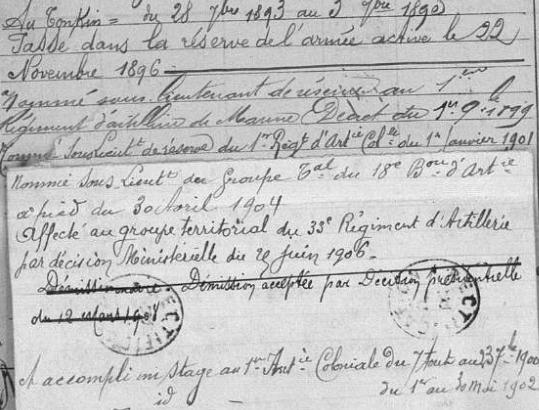 Au Tonkin = du 28 7bre 1893 au 3 9bre 1895
Passé dans la réserve de l'armée active le 22
Novembre 1896
Nommé sous lieutenant de réserve au 1er
Régiment d'artillerie de Marine Décret du 1er 9bre 1899
Nommé Sous Lieutt de réserve du 1er Régt d'Artie Colle du 1er Janvier 1901
Nommé Sous Lieutt du Groupe Tal du 18e Bon d'Artie
à pied du 30 Avril 1904
Affecté au groupe territorial du 33e Régiment d'Artillerie
par décision Ministérielle du 29 Juin 1906
Démissionnaire. Démission acceptée par Décision présidentielle
du 12 Mars 1908
A accompli un stage au 1er Artie Coloniale du 7 au 1900
id du 1er au 20 Mai 1902